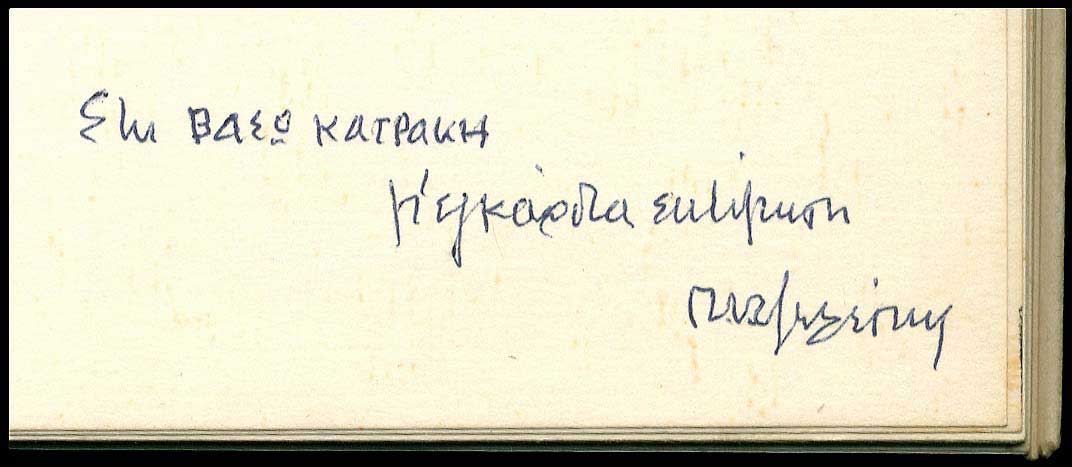 Στη ΒΑΣΩ ΚΑΤΡΑΚΗ
μ' εγκάρδια εκτίμηση